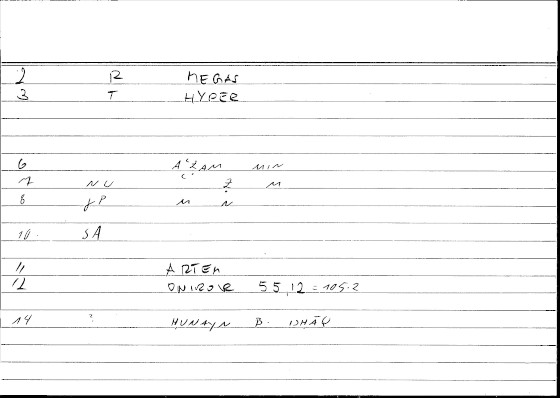 2 R MEGAS
3 T HYPER
6 AʿẒAM MIN
7 NU ʿ Ẓ M
8 GP M N
10. SA
11 ARTEM
12 ONIROKR 55,12 = 105.2
14 ḤUNAYN B. ISḤĀQ